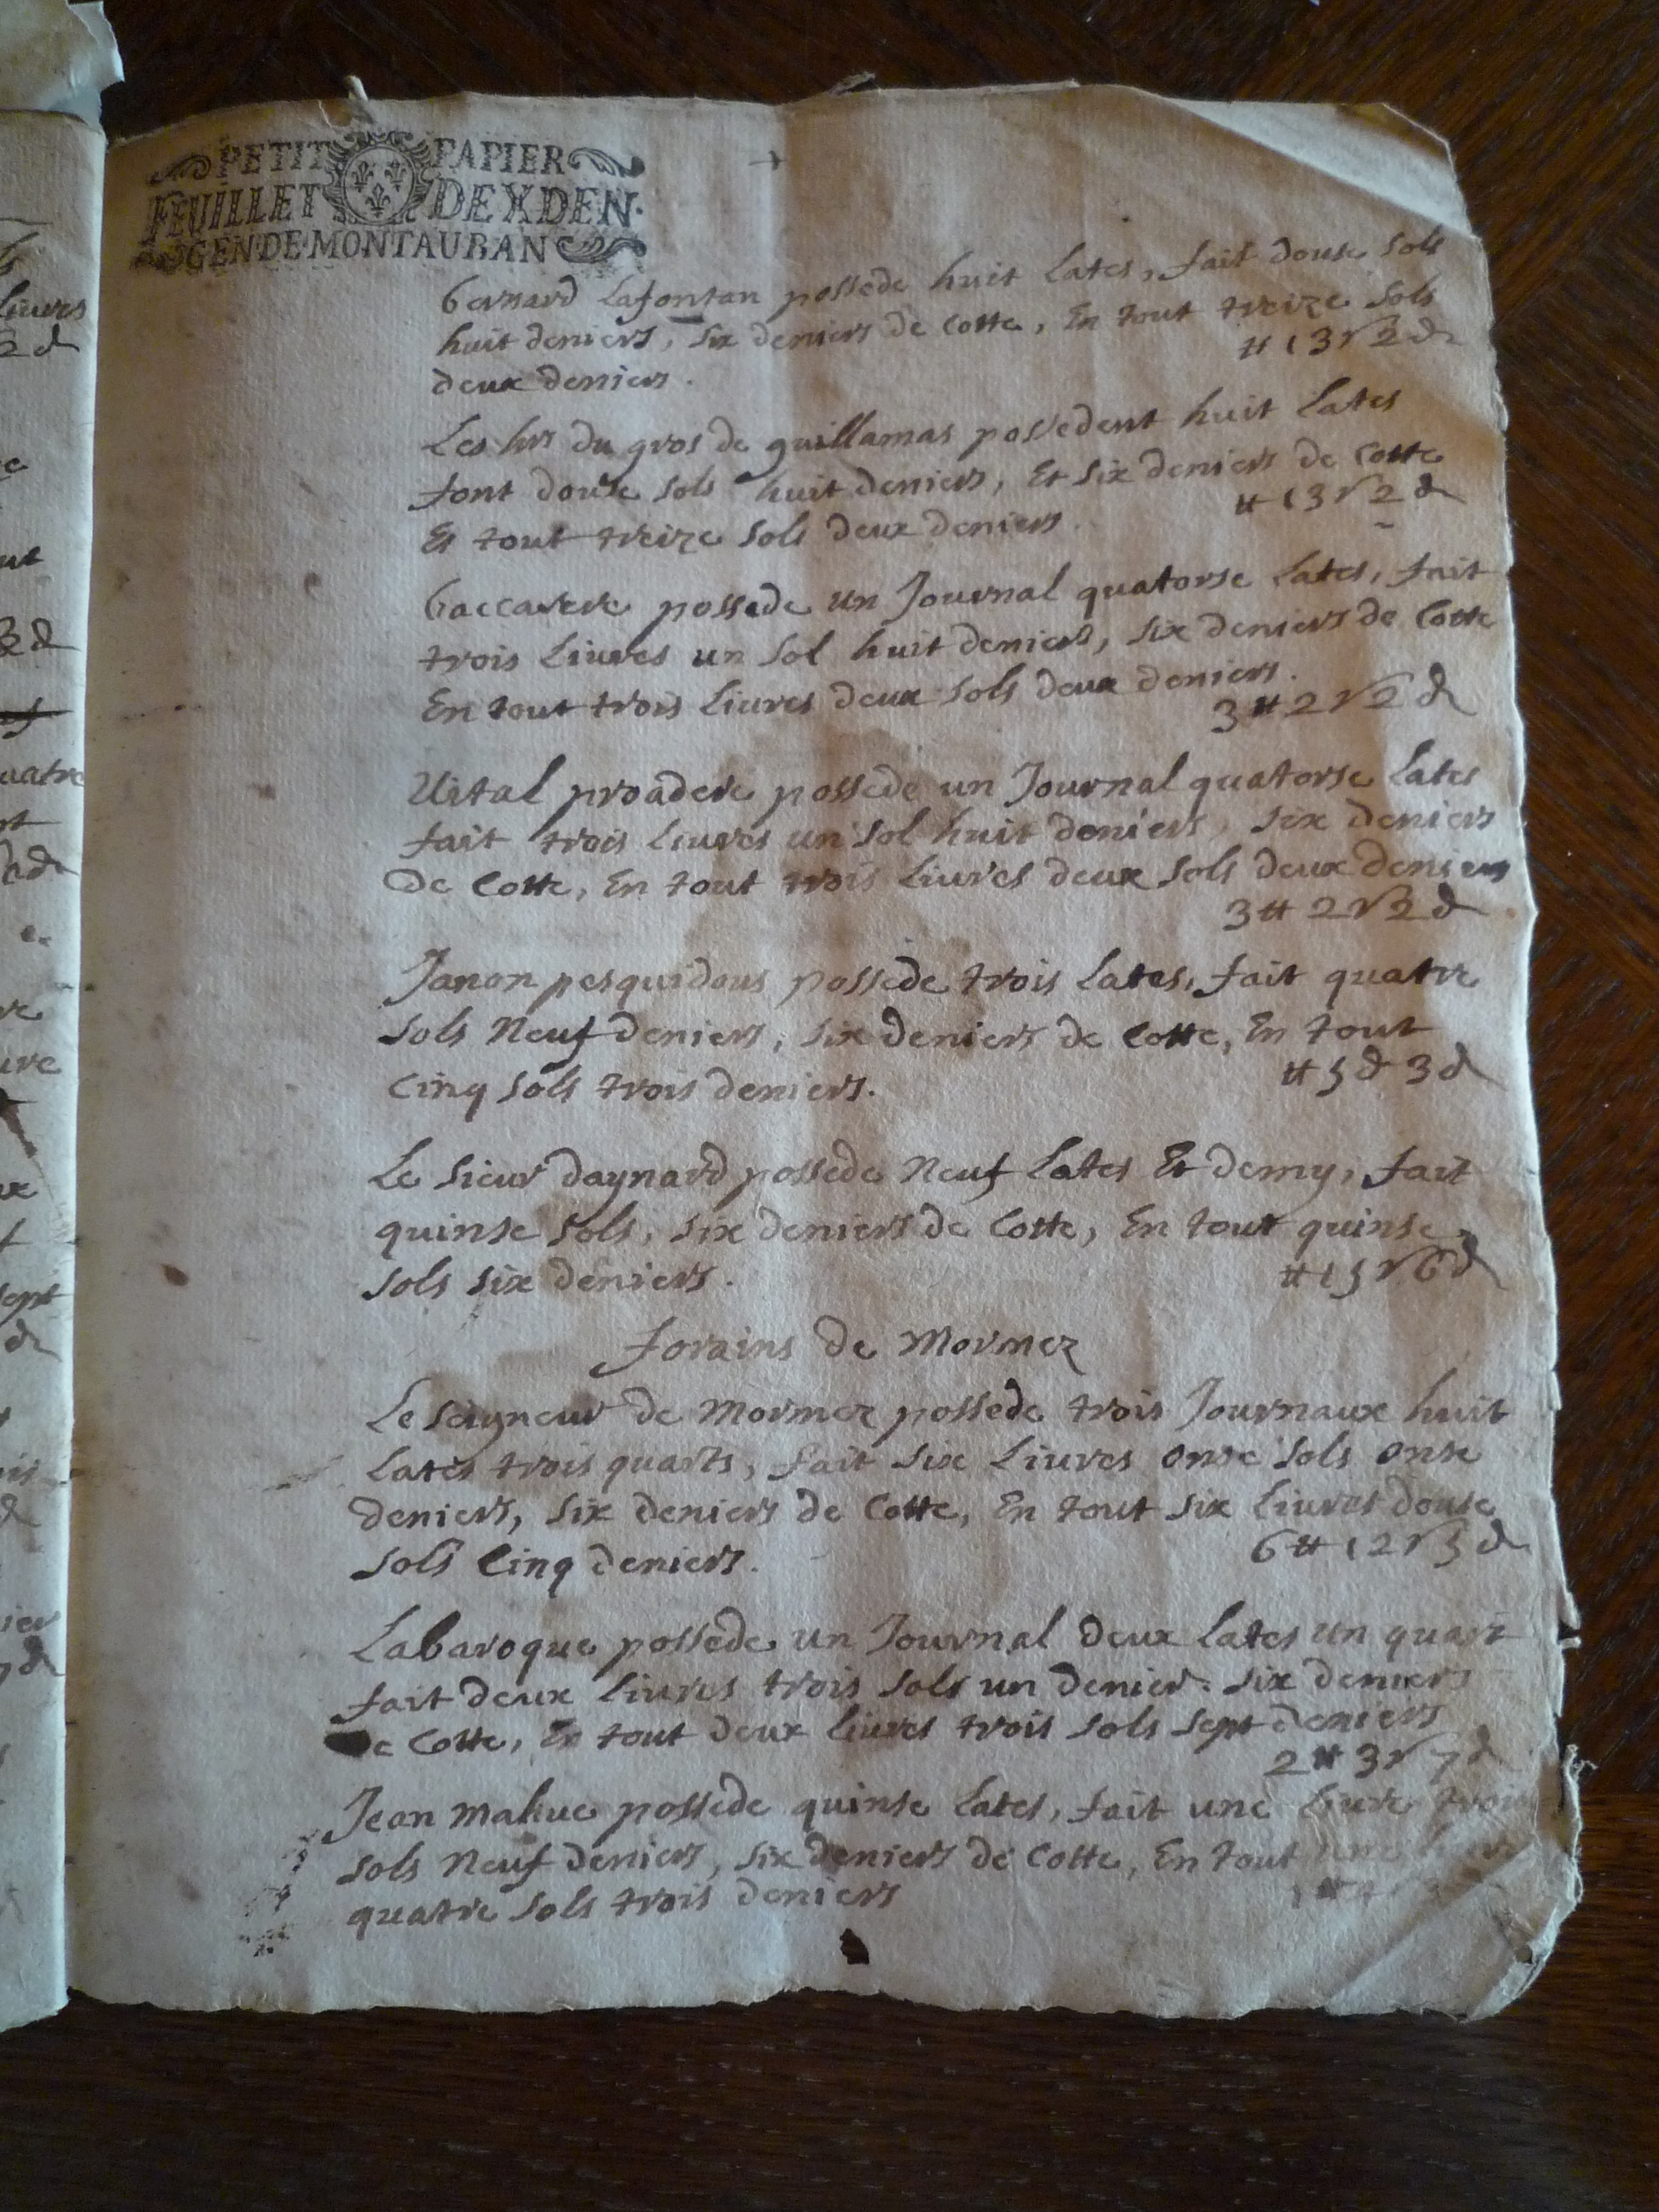 PETIT PAPIER
FEUILLET DE X DEN.
GEN DE MONTAUBAN
bernard Lafontan possede huit Lates, fait douse sols
huit deniers, six deniers de Cotte, En tout treize sols
deux deniers. # 13 s 2 d
Les hrs du gros de guillamas possedent huit Lates
font douse sols huit deniers, Et six deniers de Cotte
Et tout treize sols deux deniers. # 13 s 2 d
baccarere possede un Journal quatorse Lates, fait
trois Liures un sol huit deniers, six deniers de Cotte
En tout trois Liures deux sols deux deniers.
3 # 2 s 2 d
Vital proadere possede un Journal quatorse Lates
fait trois Liures un sol huit deniers, six deniers
De Cotte, En tout trois Liures deux sols deux deniers
3 # 2 s 2 d
Janon pesquidous possede trois Lates, fait quatre
sols Neuf deniers, six deniers de Cotte, En tout
Cinq sols trois deniers. # 5 d 3 d
Le sieur daynard possede Neuf Lates Et demy, fait
quinse sols, six deniers de Cotte, En tout quinse
sols six deniers. # 15 s 6 d
forains de Mormez
Le seigneur de Mormez possede trois Journaux huit
Lates trois quarts, fait six Liures onse sols onse
deniers, six deniers de Cotte, En tout six Liures douse
sols Cinq deniers. 6 # 12 s 5 d
Labaroque possede un Journal deux Lates un quart
fait deux liures trois sols un denier. six deniers
de Cotte, En tout deux liures trois sols sept deniers
2 # 3 s 7 d
Jean mahue possede quinse Lates, fait une Liure trois
sols Neuf deniers, six deniers de Cotte, En tout une
quatre sols trois deniers 1 # 4